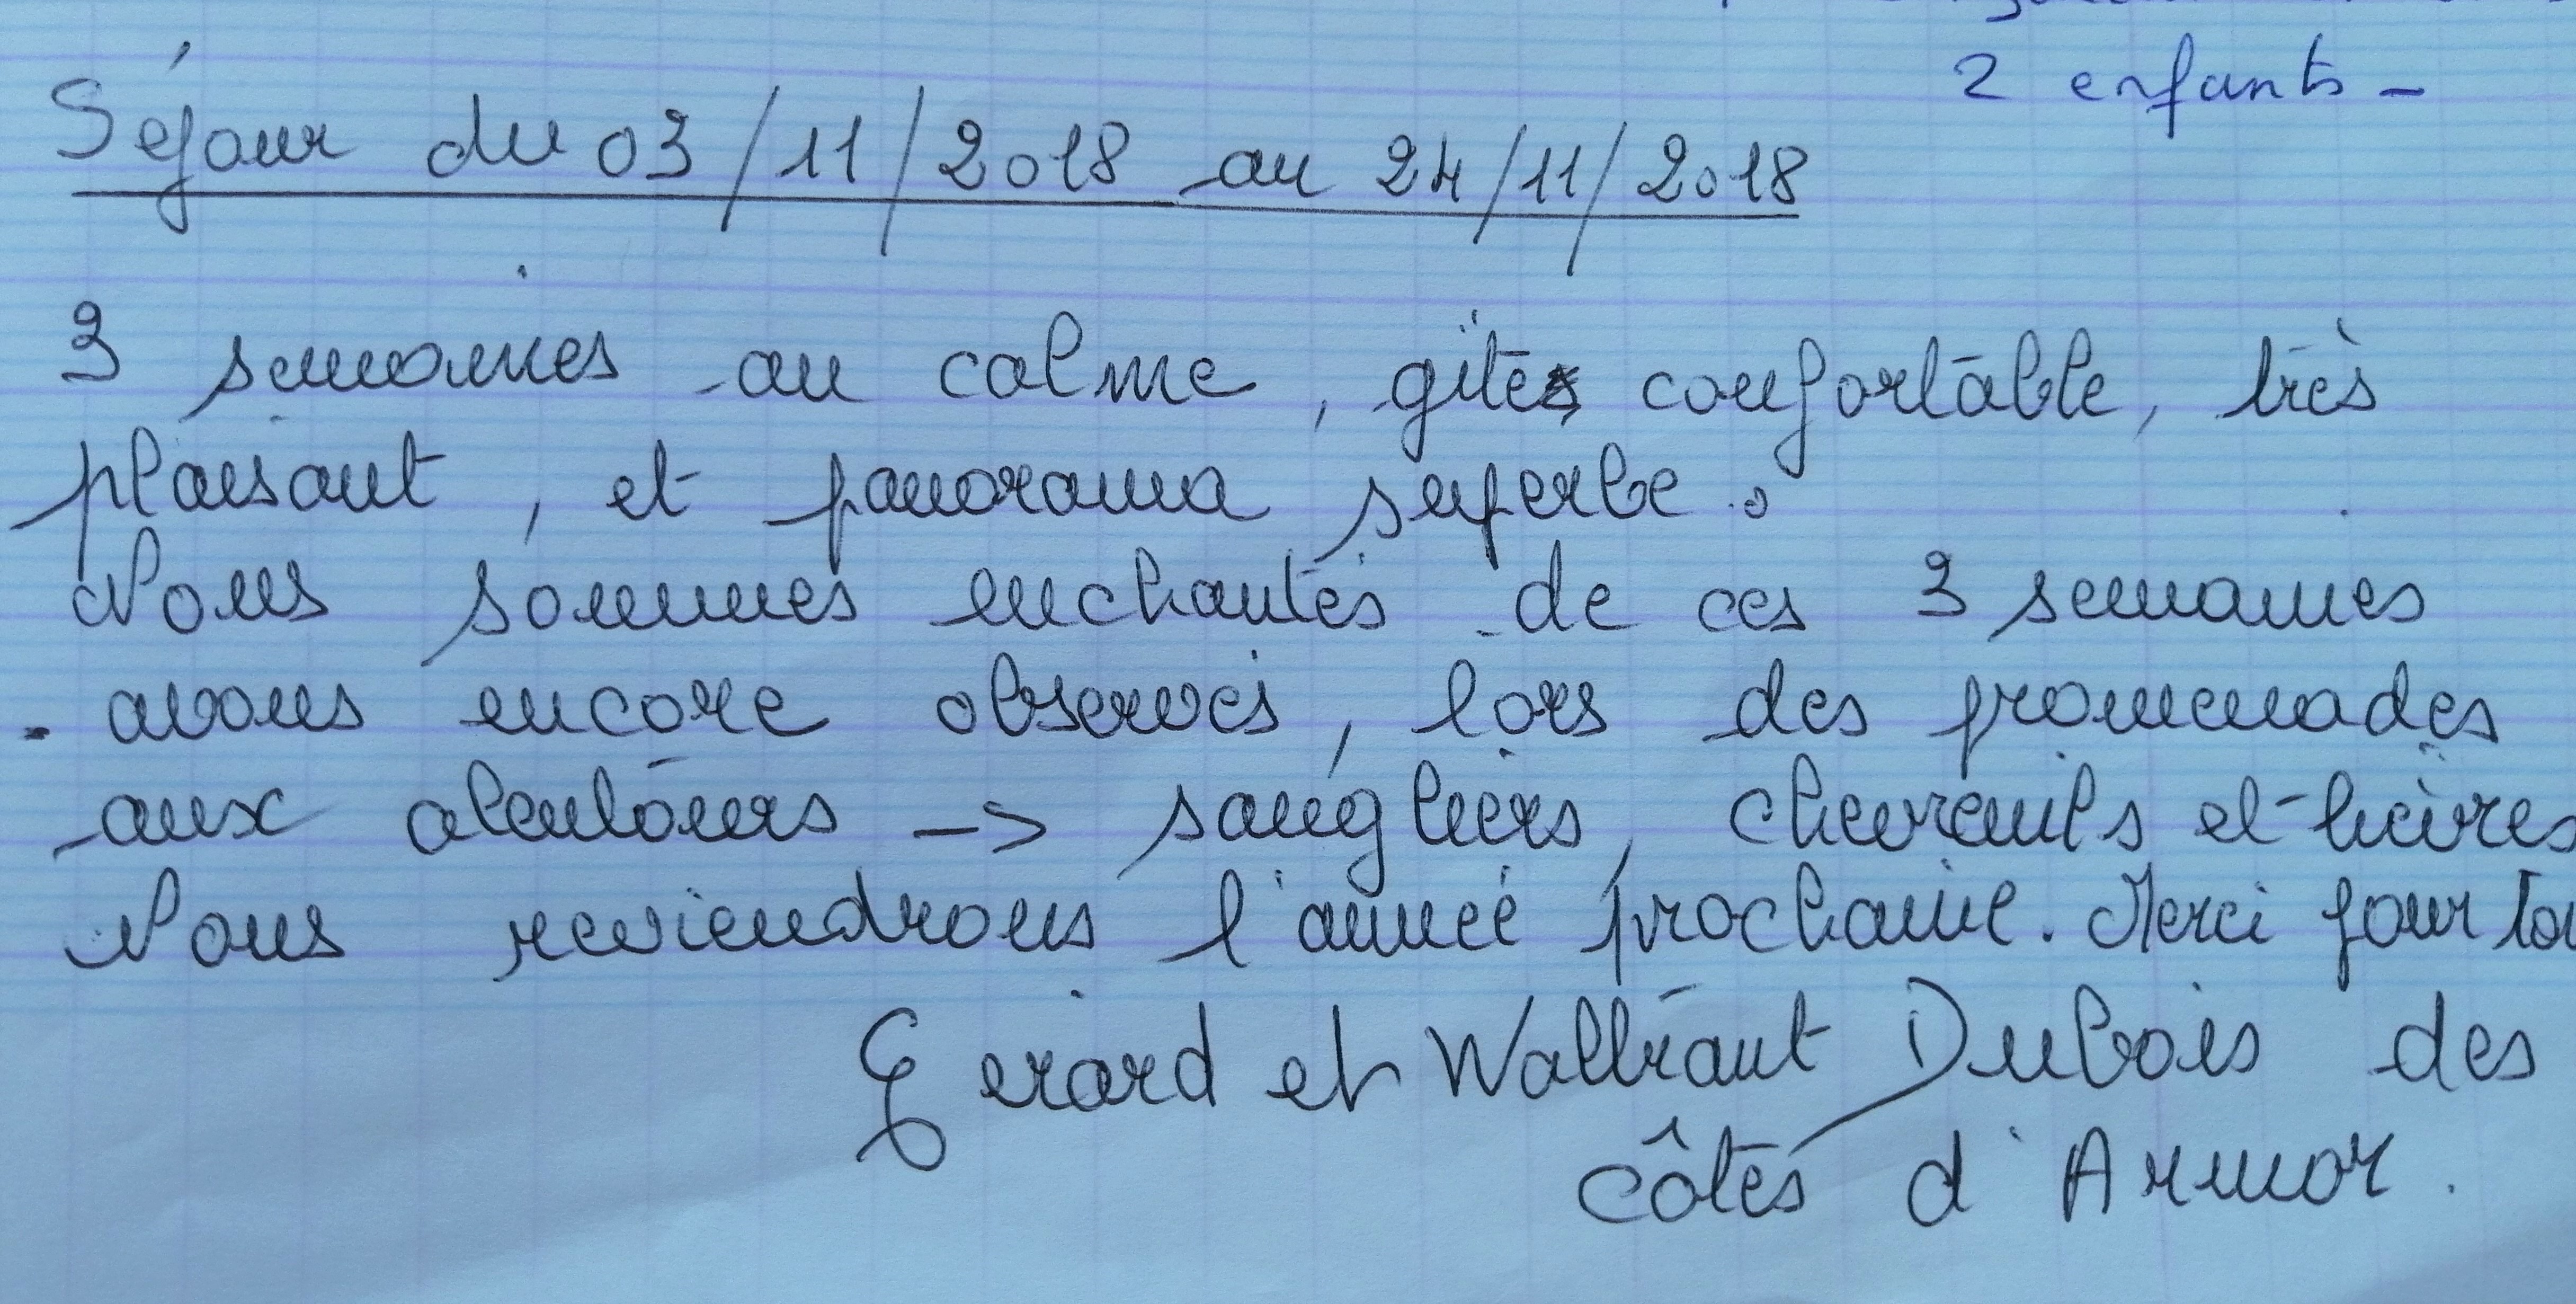 2 enfants -
Séjour du 03/11/2018 au 24/11/2018
3 semaines au calme, gîte confortable, très
plaisant, et panorama superbe.
Nous sommes enchantés de ces 3 semaines
- avons encore observés, lors des promenades
aux alentours -> sangliers, chevreuils et lièvres
Nous reviendrons l'année prochaine. Merci pour
Gerard et Waltraut Dubois des
côtes d'Armor.